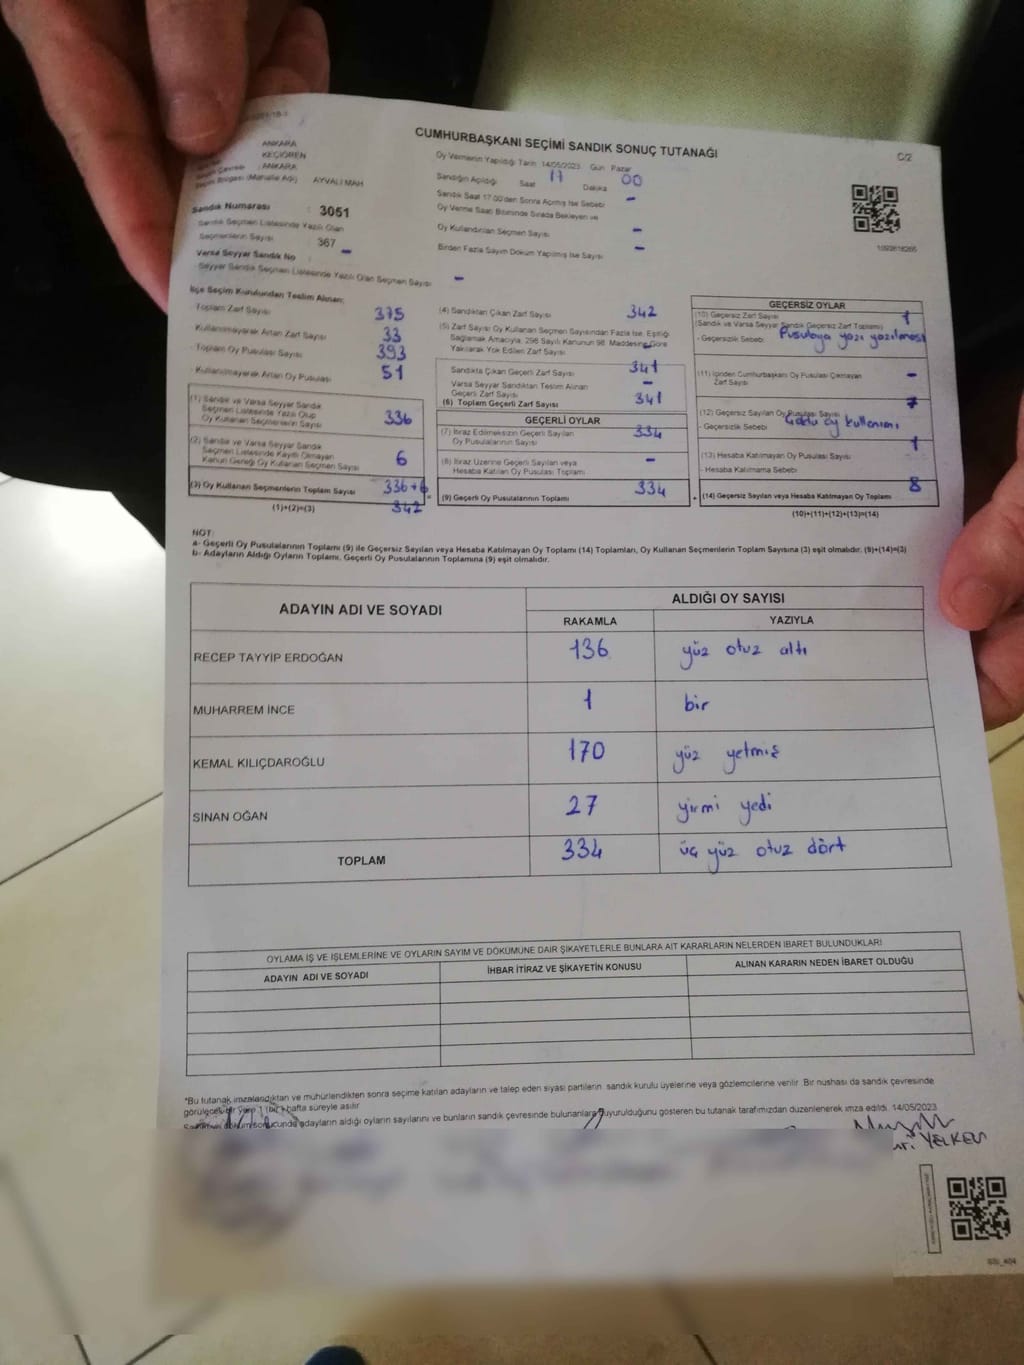 CUMHURBAŞKANI SEÇİMİ SANDIK SONUÇ TUTANAĞI
C/2
ANKARA
KEÇİÖREN
ANKARA
AYVALI MAH
Sandık Numarası : 3051
Sandık Seçmen Listesinde Yazılı Olan
Seçmenlerin Sayısı : 367
Varsa Seyyar Sandık No : -
Seyyar Sandık Seçmen Listesinde Yazılı Olan Seçmen Sayısı : -
Oy Vermenin Yapıldığı Tarih 14/05/2023 Gün Pazar
Sandığın Açıldığı Saat 17 Dakika 00
Sandık Saat 17.00'den Sonra Açılmış İse Sebebi -
Oy Verme Saati Bitiminde Sırada Bekleyen ve
Oy Kullandırılan Seçmen Sayısı -
Birden Fazla Sayım Döküm Yapılmış İse Sayısı -
İlçe Seçim Kurulundan Teslim Alınan:
- Toplam Zarf Sayısı 375
- Kullanılmayarak Artan Zarf Sayısı 33
- Toplam Oy Pusulası Sayısı 393
- Kullanılmayarak Artan Oy Pusulası 51
(1) Sandık ve Varsa Seyyar Sandık
Seçmen Listesinde Yazılı Olup
Oy Kullanan Seçmenlerin Sayısı 336
(2) Sandık ve Varsa Seyyar Sandık
Seçmen Listesinde Kayıtlı Olmayan
Kanun Gereği Oy Kullanan Seçmen Sayısı 6
(3) Oy Kullanan Seçmenlerin Toplam Sayısı 336+6
(1)+(2)=(3) 342
(4) Sandıktan Çıkan Zarf Sayısı 342
(5) Zarf Sayısı Oy Kullanan Seçmen Sayısından Fazla İse, Eşitliği
Sağlamak Amacıyla, 298 Sayılı Kanunun 98. Maddesine Göre
Yakılarak Yok Edilen Zarf Sayısı -
Sandıkta Çıkan Geçerli Zarf Sayısı 341
Varsa Seyyar Sandıktan Teslim Alınan
Geçerli Zarf Sayısı -
(6) Toplam Geçerli Zarf Sayısı 341
GEÇERLİ OYLAR
(7) İtiraz Edilmeksizin Geçerli Sayılan
Oy Pusulalarının Sayısı 334
(8) İtiraz Üzerine Geçerli Sayılan veya
Hesaba Katılan Oy Pusulası Toplamı -
(9) Geçerli Oy Pusulalarının Toplamı 334
GEÇERSİZ OYLAR
(10) Geçersiz Zarf Sayısı 1
(Sandık ve Varsa Seyyar Sandık Geçersiz Zarf Toplamı)
- Geçersizlik Sebebi Pusulaya yazı yazılması
(11) İçinden Cumhurbaşkanı Oy Pusulası Çıkmayan
Zarf Sayısı -
(12) Geçersiz Sayılan Oy Pusulası Sayısı 7
- Geçersizlik Sebebi Çoklu oy kullanımı
(13) Hesaba Katılmayan Oy Pusulası Sayısı 1
- Hesaba Katılmama Sebebi
(14) Geçersiz Sayılan veya Hesaba Katılmayan Oy Toplamı 8
(10)+(11)+(12)+(13)=(14)
NOT:
a- Geçerli Oy Pusulalarının Toplamı (9) ile Geçersiz Sayılan veya Hesaba Katılmayan Oy Toplamı (14) Toplamları, Oy Kullanan Seçmenlerin Toplam Sayısına (3) eşit olmalıdır. (9)+(14)=(3)
b- Adayların Aldığı Oyların Toplamı, Geçerli Oy Pusulalarının Toplamına (9) eşit olmalıdır.
ADAYIN ADI VE SOYADI
ALDIĞI OY SAYISI
RAKAMLA YAZIYLA
RECEP TAYYİP ERDOĞAN 136 yüz otuz altı
MUHARREM İNCE 1 bir
KEMAL KILIÇDAROĞLU 170 yüz yetmiş
SİNAN OĞAN 27 yirmi yedi
TOPLAM 334 üç yüz otuz dört
OYLAMA İŞ VE İŞLEMLERİNE VE OYLARIN SAYIM VE DÖKÜMÜNE DAİR ŞİKAYETLERLE BUNLARA AİT KARARLARIN NELERDEN İBARET BULUNDUKLARI
ADAYIN ADI VE SOYADI İHBAR İTİRAZ VE ŞİKAYETİN KONUSU ALINAN KARARIN NEDEN İBARET OLDUĞU
*Bu tutanak imzalandıktan ve mühürlendikten sonra seçime katılan adayların ve talep eden siyasi partilerin sandık kurulu üyelerine veya gözlemcilerine verilir. Bir nüshası da sandık çevresinde
görülecek bir yere 1 (bir) hafta süreyle asılır.
döküm sonucunda adayların aldığı oyların sayılarını ve bunların sandık çevresinde bulunanlara duyurulduğunu gösteren bu tutanak tarafımızdan düzenlenerek imza edildi. 14/05/2023
YELKEN